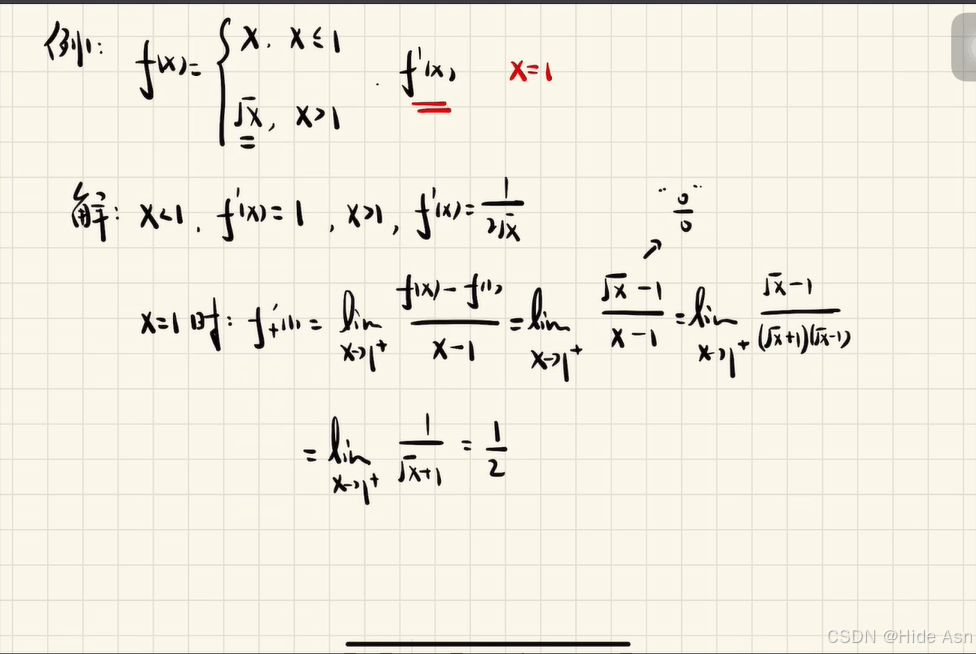 例1: f(x)= { x, x≤1 f'(x) x=1
√x, x>1
解: x<1, f'(x)=1, x>1, f'(x)=1/(2√x) "0/0"
x=1时: f₊'(1) = lim_{x→1⁺} (f(x)-f(1))/(x-1) = lim_{x→1⁺} (√x-1)/(x-1) = lim_{x→1⁺} (√x-1)/((√x+1)(√x-1))
= lim_{x→1⁺} 1/(√x+1) = 1/2
CSDN @Hide Asn